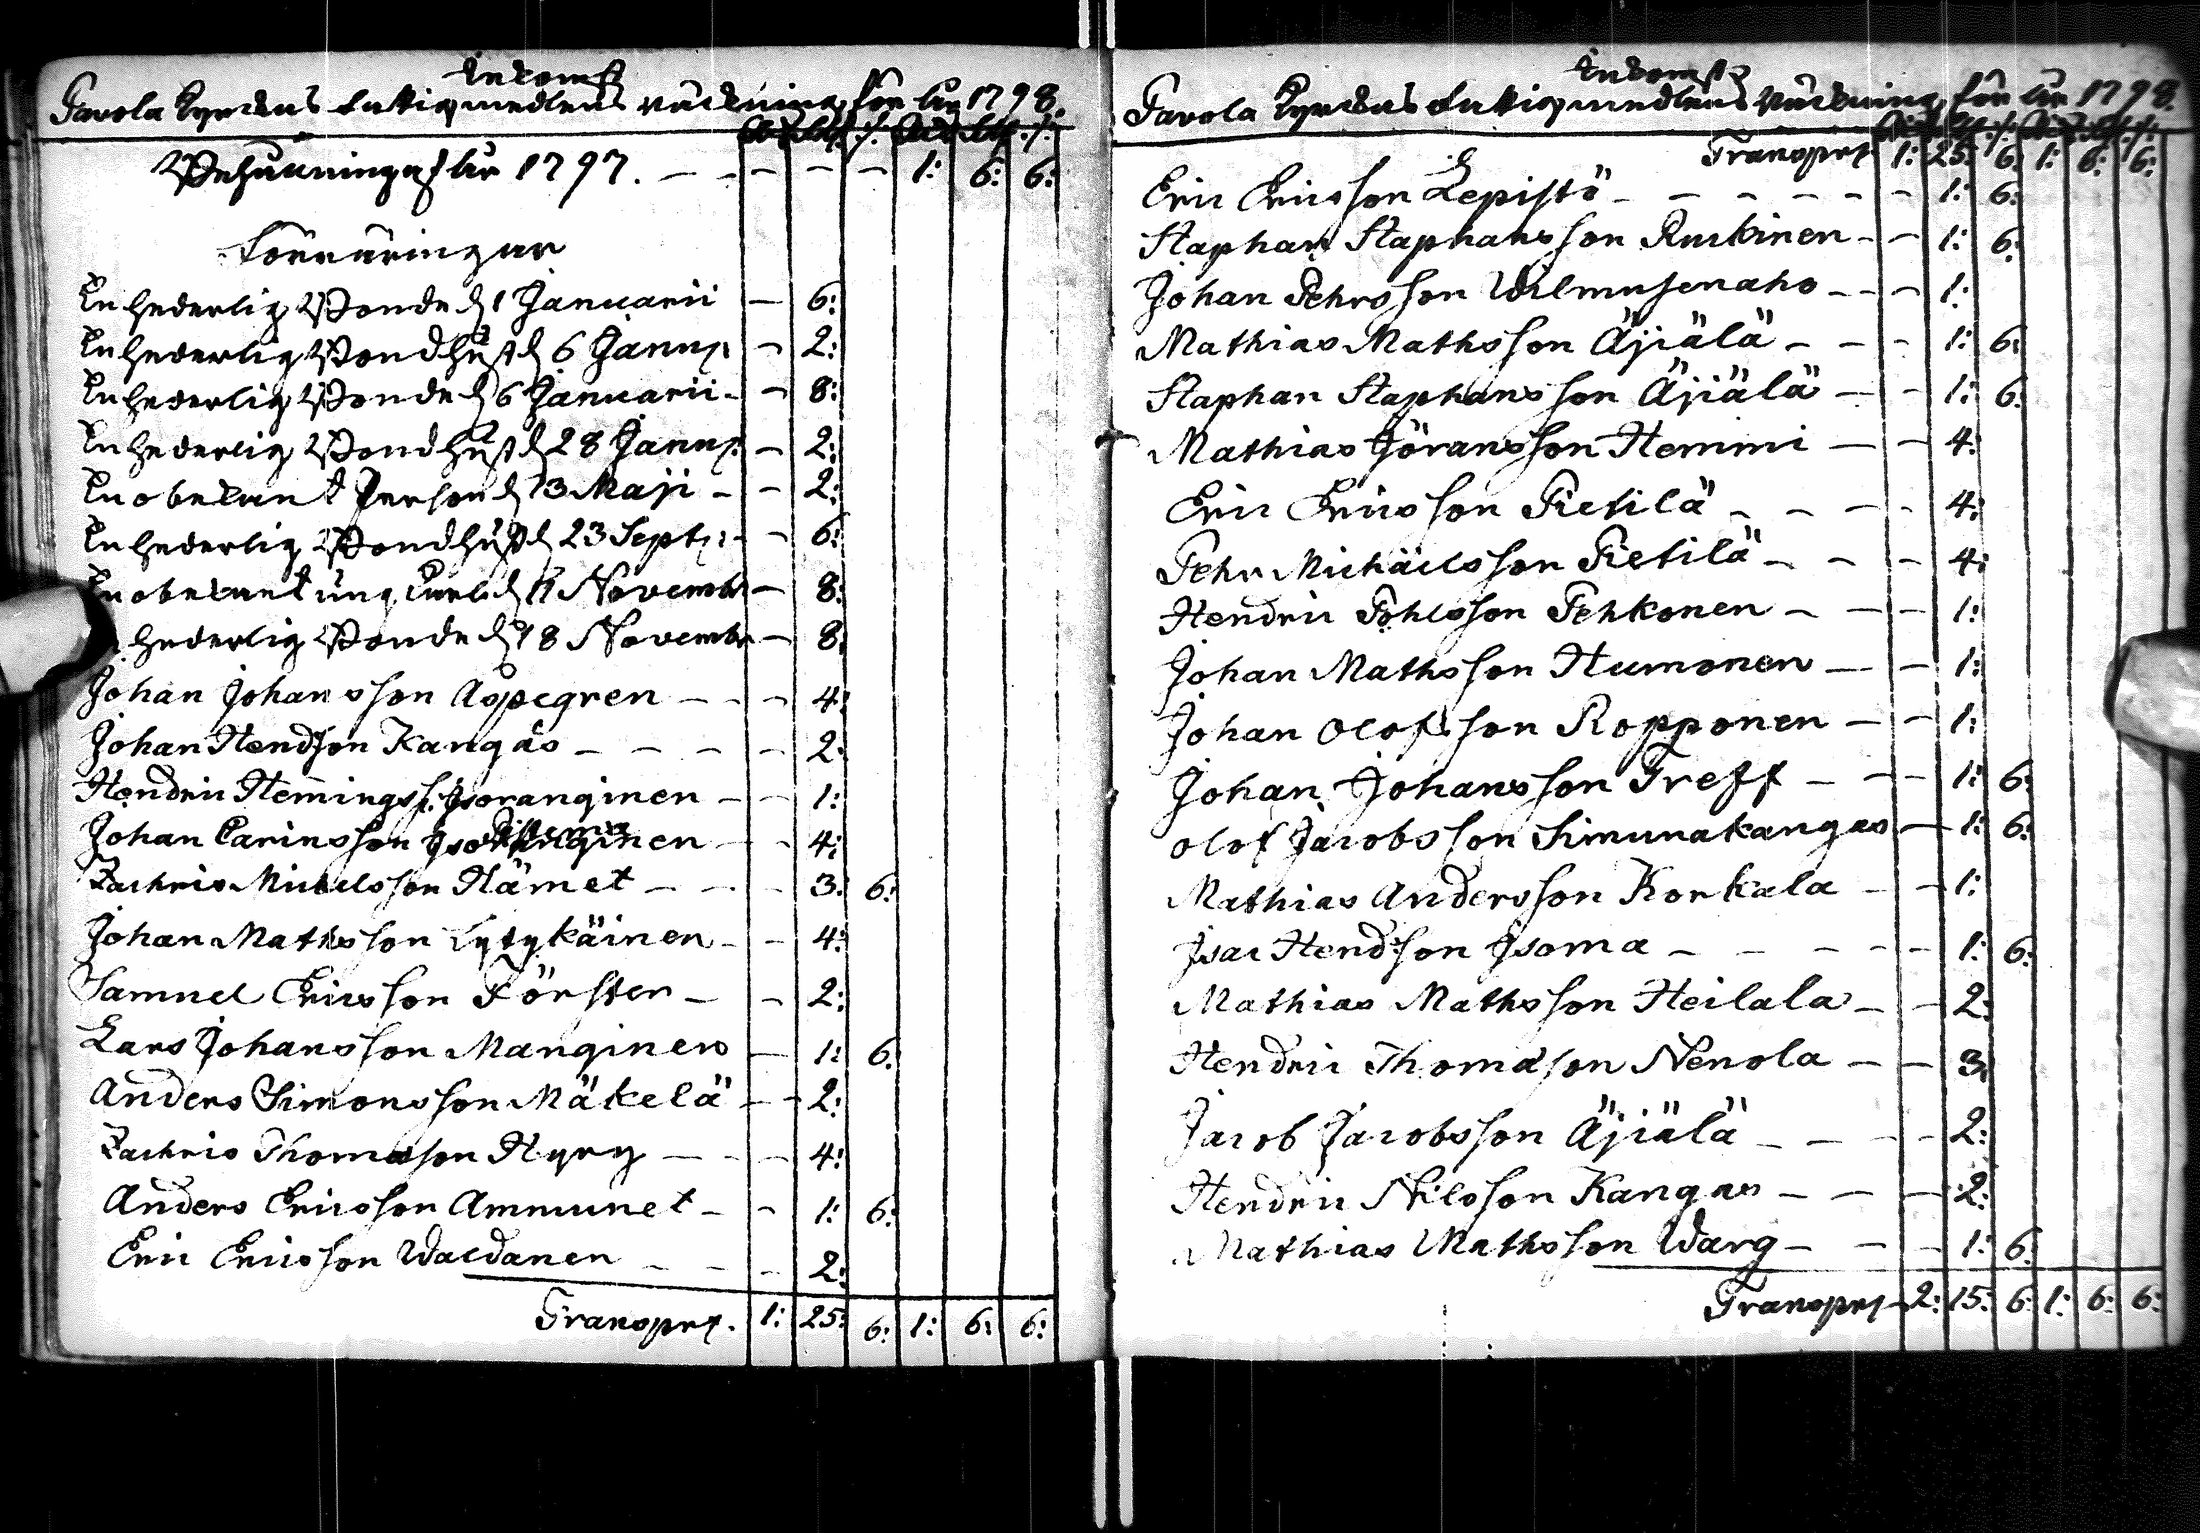 Inkomst
Pavola Kyrckas Fattigmedlens räckning för år 1798.
Behållning af år 1797. - - - - - 1: 6: 6:
Förräringar
En hederlig Bonde d 1 Januarii - 6:
En hederlig Bondhust d 6 Janua: - 2:
En hederlig Bonde d 6 Januarii - - 8:
En hederlig Bondhust d 28 Janua: - 2:
En obekant Person d 13 Maji - - 2:
En hederlig Bondhust d 23 Septr: - - 6:
En obekant ung Karl d 11 Novembr - 8:
hederlig Bonde d 18 Novembr - 8:
Johan Johansson Aspegren - - - 4:
Johan Hendsson Kangas - - - - 2:
Hendric Hemingss: Isoranginen - - 1:
Johan Carinsson - - 4:
Zachris Mickelsson Hämet - - - 3: 6:
Johan Mathsson Lytykäinen - - 4:
Samuel Ericsson Förster - - 2:
Lars Johansson Manginen - 1: 6:
Anders Simonsson Mäkelä - - 2:
Zachris Thomasson Hyry - - - 4:
Anders Ericsson Ammunet - - 1: 6:
Eric Ericsson Waldanen - - - 2:
Transprt. 1: 25: 6: 1: 6: 6:
Inkomst
Pavola Kyrckas Fattigmedlens räckning för år 1798.
Transprt 1: 25: 6: 1: 6: 6:
Eric Ericsson Lepistö - - - - - - - 1: 6:
Staphan Staphansson Ruskinen - - 1: 6:
Johan Pehrsson Wilmusenaho - - - 1:
Mathias Mathsson Äjiälä - - - 1: 6:
Staphan Staphansson Äjiälä - - 1: 6:
Mathias Jöransson Hemmi - - 4:
Eric Ericsson Pietilä - - - - 4:
Pehr Michäelsson Pietilä - - - 4:
Hendric Pohlsson Pehkonen - - - 1:
Johan Mathsson Humonen - - 1:
Johan Olofsson Ropponen - - 1:
Johan Johansson Treff - - - 1: 6:
Olof Jacobsson Simunakangas - 1: 6:
Mathias Andersson Korkala - - 1:
Isac Hendsson Isoma - - - - - 1: 6:
Mathias Mathsson Heilala - - 2:
Hendric Thomasson Nenola - - 3:
Jacob Jacobsson Äjiälä - - - - 2:
Hendric Nilsson Kangas - - - 2:
Mathias Mathsson Warg - - - 1: 6:
Transprt 2: 15: 6: 1: 6: 6: